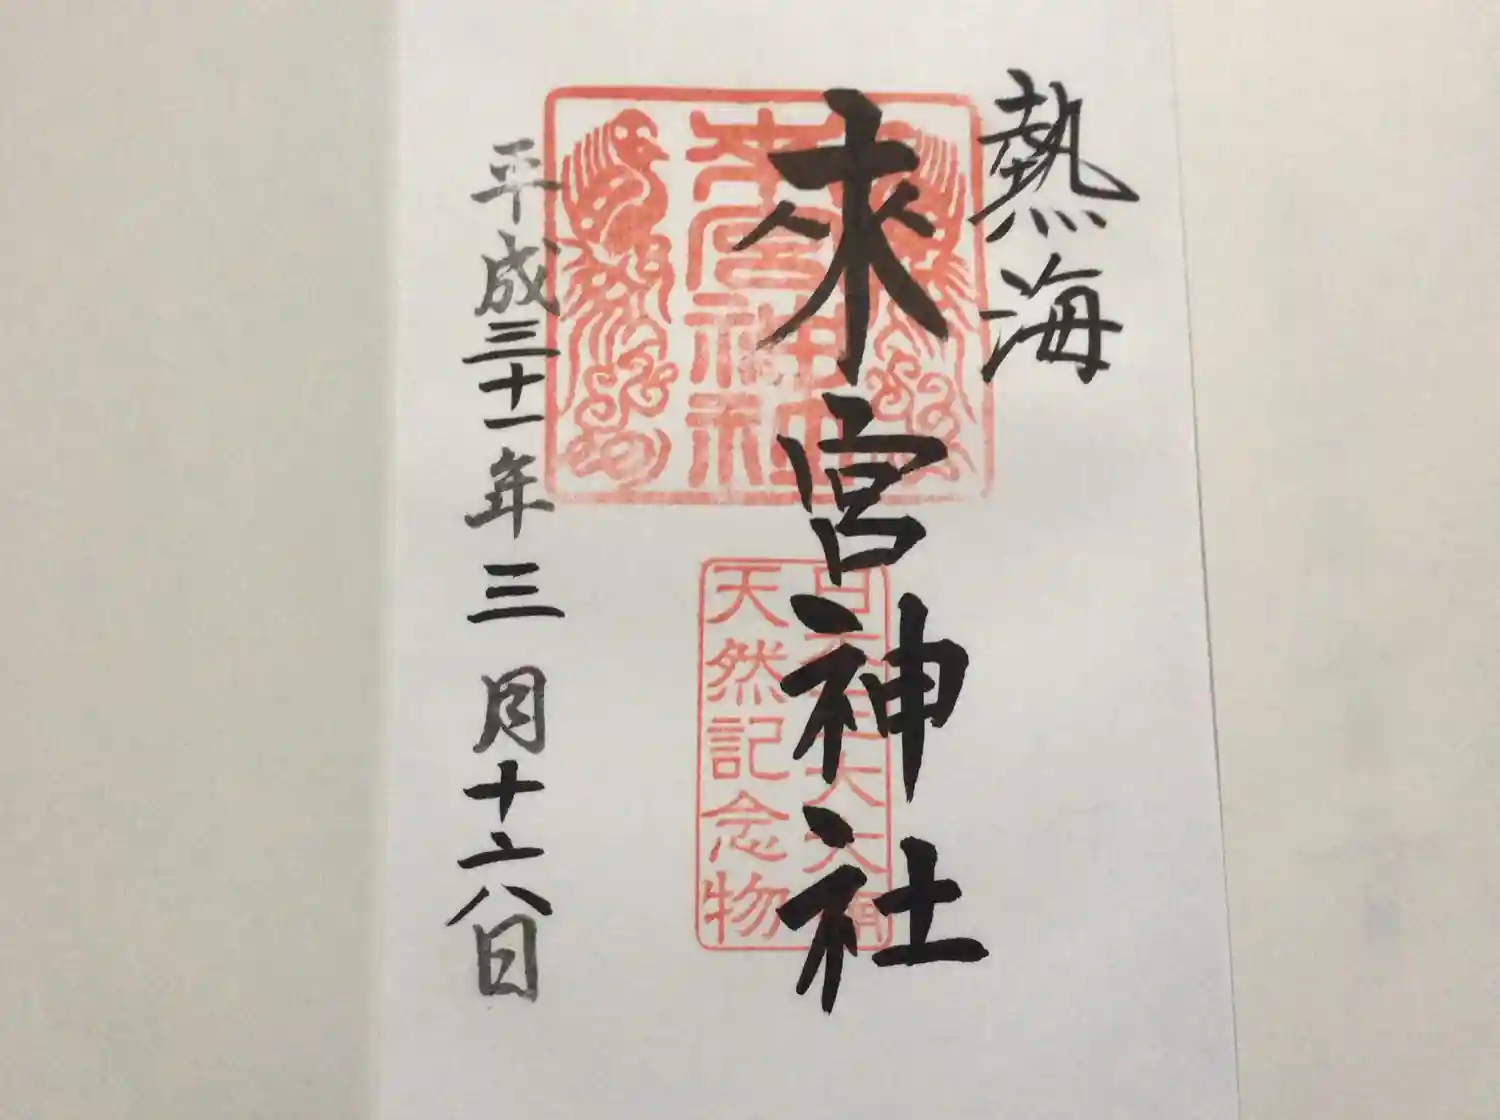 熱海
來宮神社
來宮神社
天然記念物
平成三十一年三月十六日